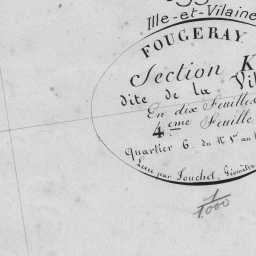 Ille-et-Vilaine
FOUGERAY
Section K
dite de la Vil
En dix Feuilles
4eme Feuille
Quartier 6. du N° 1er au
Levé par Souchet, Géomètre
1/1000